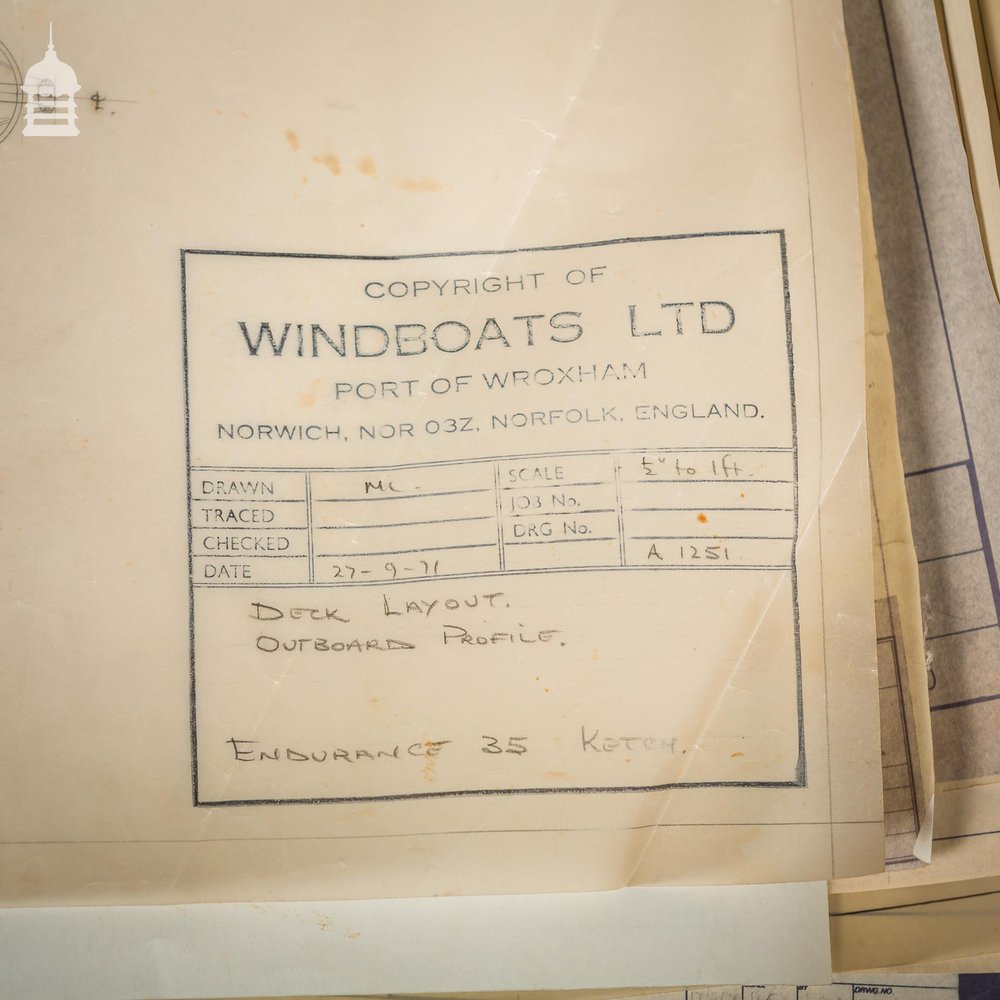 ℄
COPYRIGHT OF
WINDBOATS LTD
PORT OF WROXHAM
NORWICH, NOR 03Z, NORFOLK, ENGLAND.
DRAWN MC. SCALE ½" to 1ft.
TRACED JOB No.
CHECKED DRG No.
DATE 27-9-71 A 1251
DECK LAYOUT.
OUTBOARD PROFILE.
ENDURANCE 35 KETCH.
DRWG.NO.